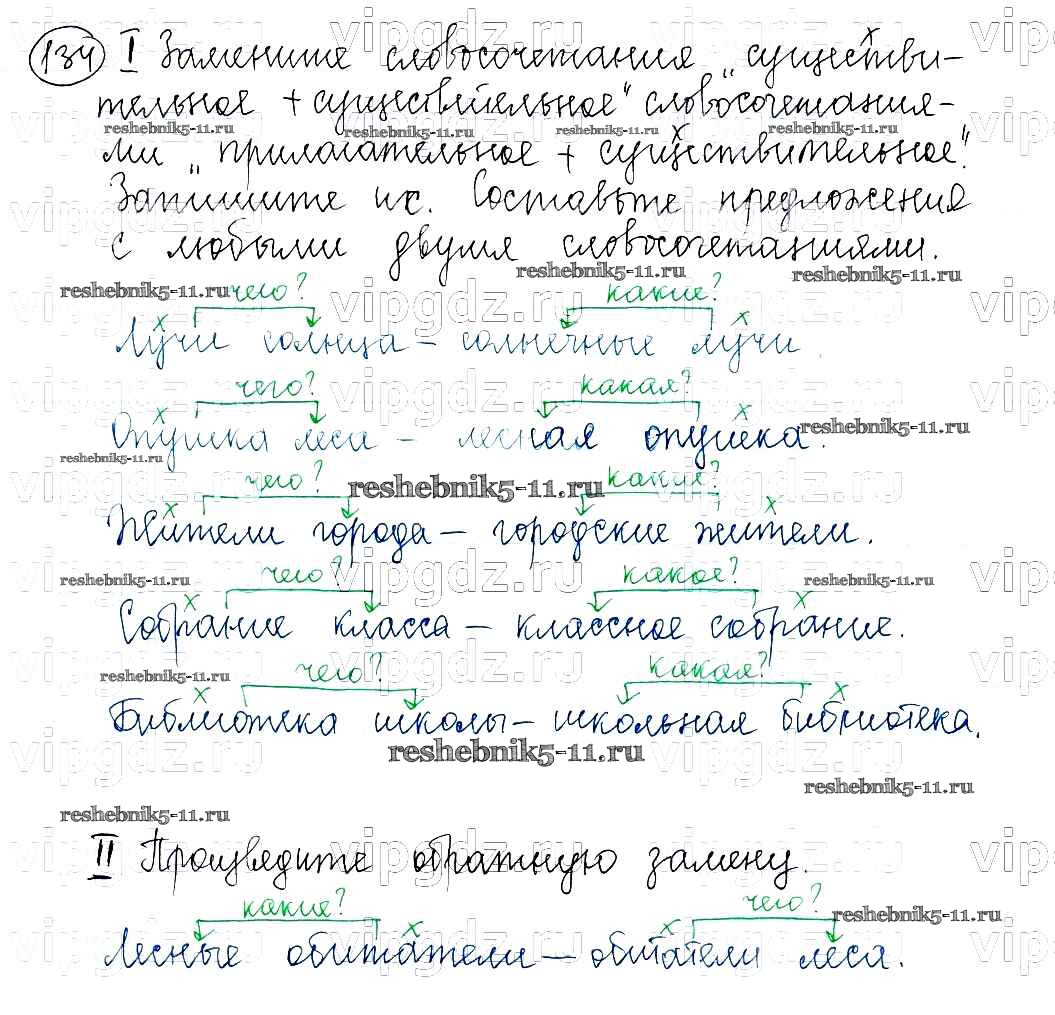 134 I Замените словосочетания „существи-
тельное + существительное" словосочетания-
ми „прилагательное + существительное".
Запишите их. Составьте предложения
с любыми двумя словосочетаниями.
чего? какие?
Лучи солнца – солнечные лучи.
чего? какая?
Опушка леса – лесная опушка.
чего? какие?
Жители города – городские жители.
чего? какое?
Собрание класса – классное собрание.
чего? какая?
Библиотека школы – школьная библиотека.
II Произведите обратную замену.
какие? чего?
Лесные обитатели – обитатели леса.
reshebnik5-11.ru
vipgdz.ru